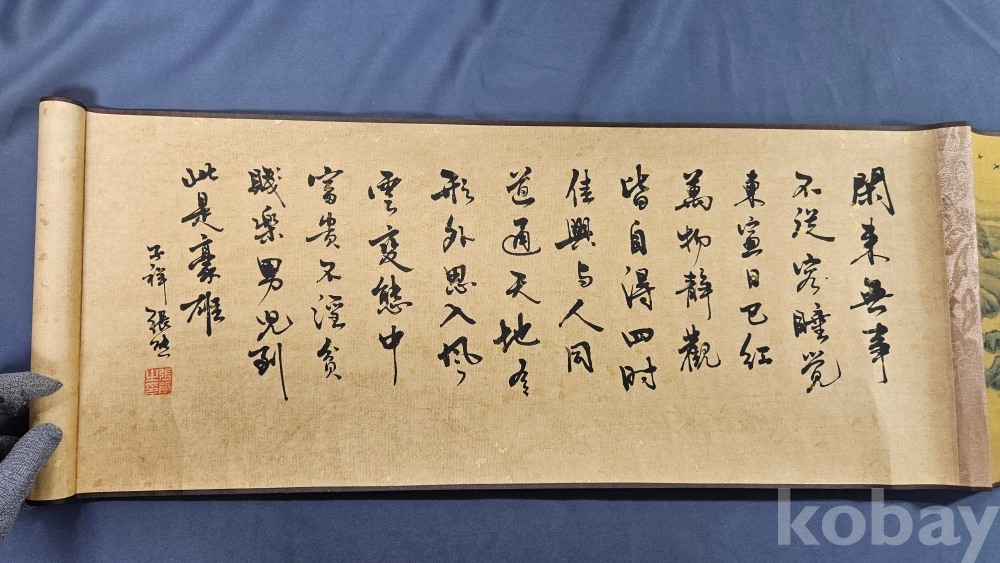 閑来無事
不從容睡覺
東窗日已紅
萬物靜觀
皆自得四时
佳興与人同
道通天地有
形外思入風
雲變態中
富貴不淫貧
賤樂男兒到
此是豪雄
子祥張熊
張熊之印
kobay